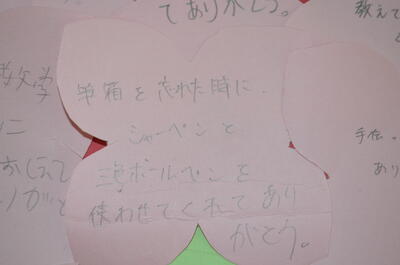 てありがとう。
教えて
数学
に
おしえて
りがと
筆箱を忘れた時に、
シャーペンと
三色ボールペンを
使わせてくれてあり
がとう。
手伝
あり